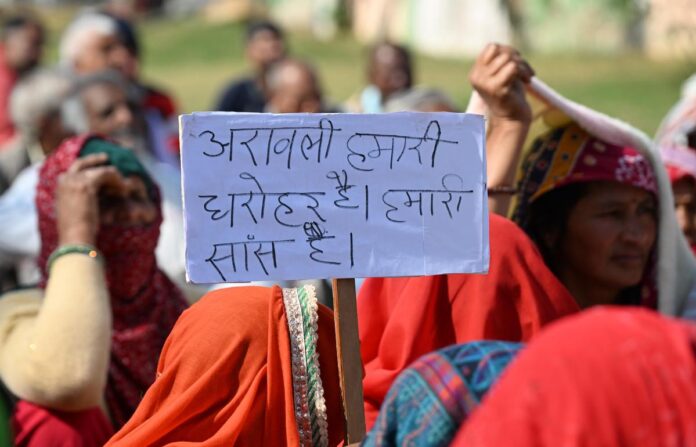 अरावली हमारी
घरोहर है। हमारी
सांस है।